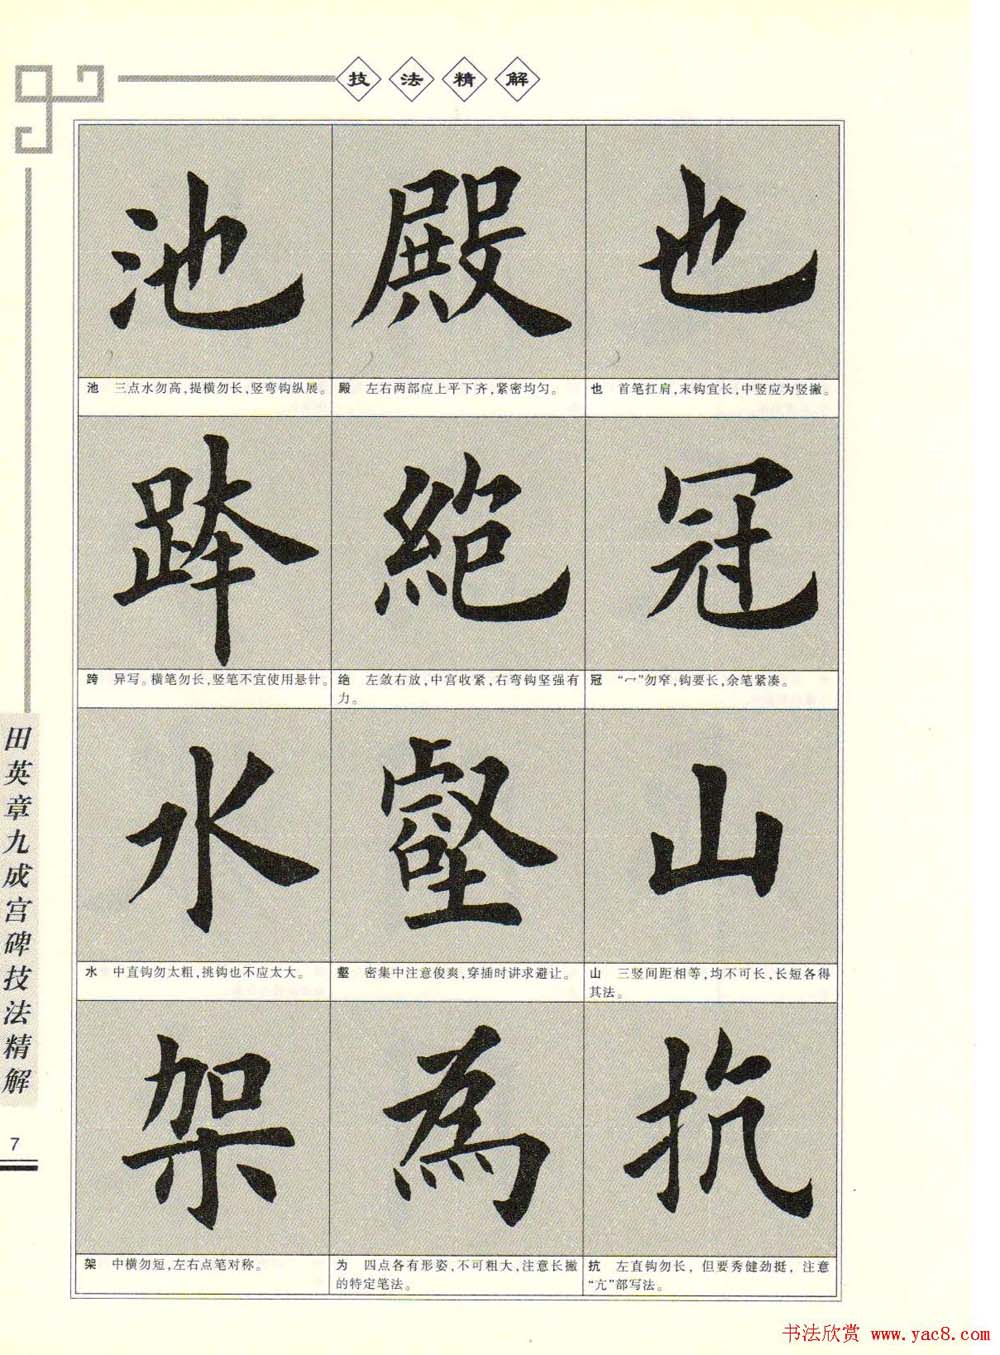 技法精解
池 殿 也
池 三点水勿高，提横勿长，竖弯钩纵展。
殿 左右两部应上平下齐，紧密均匀。
也 首笔扛肩，末钩宜长，中竖应为竖撇。
跨 絶 冠
跨 异写。横笔勿长，竖笔不宜使用悬针。
绝 左敛右放，中宫收紧，右弯钩坚强有
力。
冠 “冖”勿窄，钩要长，余笔紧凑。
水 壑 山
水 中直钩勿太粗，挑钩也不应太大。
壑 密集中注意俊爽，穿插时讲求避让。
山 三竖间距相等，均不可长，长短各得
其法。
架 為 抗
架 中横勿短，左右点笔对称。
为 四点各有形姿，不可粗大，注意长撇
的特定笔法。
抗 左直钩勿长，但要秀健劲挺，注意
“亢”部写法。
田英章九成宫碑技法精解
7
书法欣赏 www.yac8.com